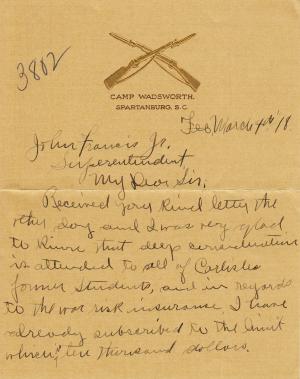 3802
CAMP WADSWORTH.
SPARTANBURG, S.C.
Feb March 4th 18.
John Francis Jr.
Superentendent
My Dear Sir.
Received your kind letter the
other day and I was very glad
to know that deep consideration
is attended to all of Carlisles
former students, and in regards
to the war risk insurance I have
already subscribed to the limit
which ten thousand dollars.